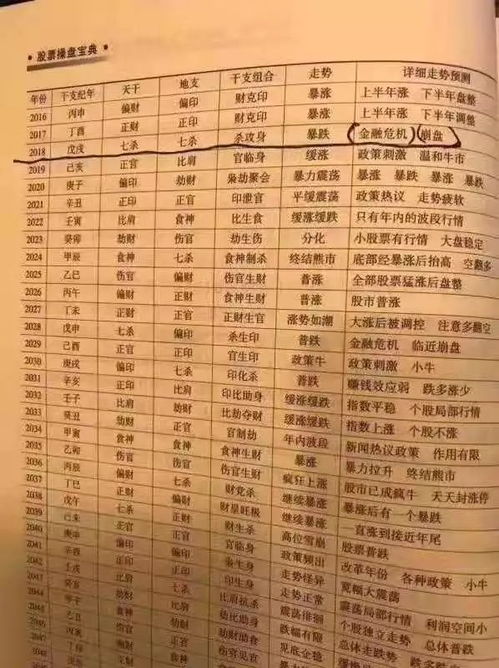 股票操盘宝典
年份 干支纪年 天干 地支 干支组合 走势 详细走势预测
2016 丙申 偏财 偏印 财克印 暴涨 上半年涨 下半年盘整
2017 丁酉 正财 正印 财克印 暴涨 上半年涨 下半年调整
2018 戊戌 七杀 七杀 杀攻身 暴跌 (金融危机)(崩盘)
2019 己亥 正官 比肩 官临身 缓涨 政策刺激 温和牛市
2020 庚子 偏印 劫财 枭劫聚会 暴力震荡 暴涨 暴跌 暴涨 暴跌
2021 辛丑 正印 正官 印泄官 平缓震荡 政策热议 走势疲软
2022 壬寅 比肩 食神 比生食 缓涨缓跌 只有年内的波段行情
2023 癸卯 劫财 伤官 劫生伤 分化 小股票有行情 大盘稳定
2024 甲辰 食神 七杀 食神制杀 终结熊市 底部经暴涨后抬高 空翻多
2025 乙巳 伤官 偏财 伤官生财 普涨 全部股票猛涨后盘整
2026 丙午 偏财 正财 食神生财 普涨 股市普涨
2027 丁未 正财 正官 正财生官 涨势如潮 大涨后被调控 注意多翻空
2028 戊申 七杀 偏印 杀生印 普跌 金融危机 临近崩盘
2029 己酉 正官 正印 官生印 政策牛 政策刺激 小牛
2030 庚戌 偏印 七杀 印化杀 普跌 赚钱效应弱 跌多涨少
2031 辛亥 正印 比肩 印比助身 缓涨缓跌 指数平稳 个股局部行情
2032 壬子 比肩 劫财 比劫夺财 缓涨缓跌 指数上涨 个股不涨
2033 癸丑 劫财 正官 官制劫 年内波段 新闻热议政策 作用有限
2034 甲寅 食神 食神 暴涨 暴力拉升 终结熊市
2035 乙卯 伤官 伤官 疯狂上涨 股市已成疯牛 天天封涨停
2036 丙辰 偏财 七杀 财党杀 继续暴涨 暴涨后有一个暴跌
2037 丁巳 正财 偏财 财星旺极 继续暴涨 一直涨到接近年尾
2038 戊午 七杀 正财 高位雪崩 股票普跌
2039 己未 正官 正官 官临身 政策频出 改革年份 各种政策 小牛
2040 庚申 偏印 偏印 走势怪异 宽幅大震荡
2041 辛酉 正印 正印 走势正常 震荡局部行情 利润空间小
2042 比肩 七杀 震荡徘徊 个股独立走势 总体普跌
2043 癸亥 劫财 比肩 跌幅有限 总体走跌势